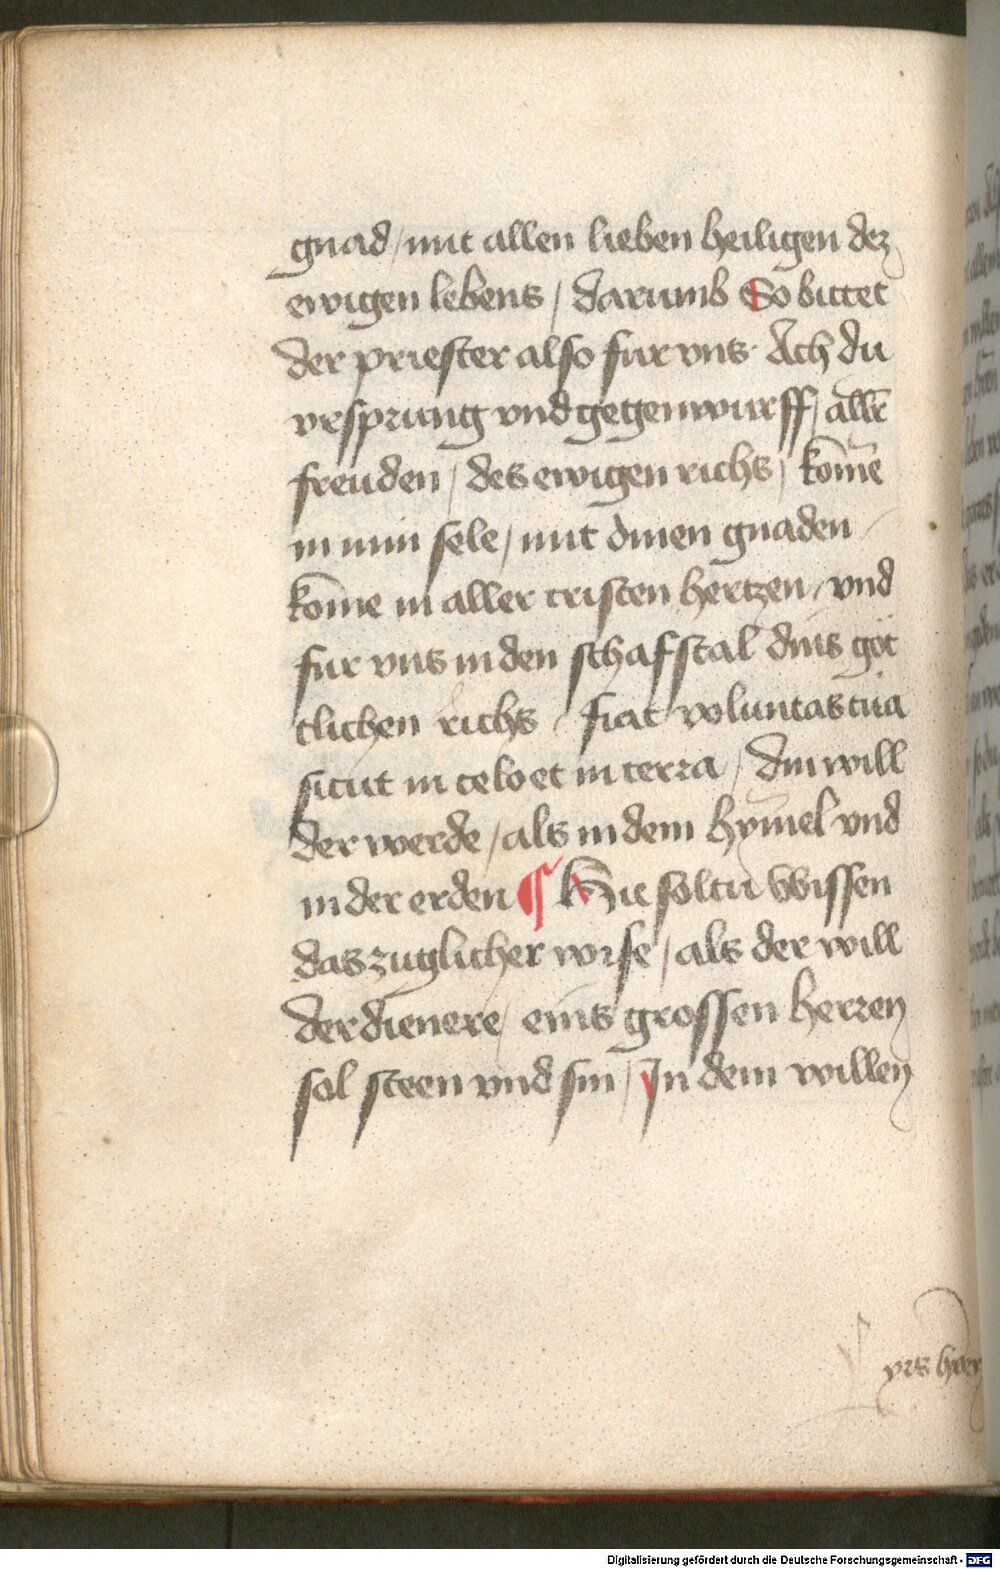 gnad / mit allen lieben heiligen dez
ewigen lebens / darumb So bittet
der priester also fur vns · Ach du
vrsprung vnd gegenwurff / allr̄
freuden / des ewigen richs / kom̄e
in min sele / mit dinen gnaden /
kom̄e in aller cristen hertzen / vnd
fur vns in den schafstal dins got
tlichen richs / fiat voluntas tua
sicut in celo et in terra / din will
der werde / als in dem hym̄el vnd
in der erden ¶ Hie soltu wissen
das zuglicher wise / als der will
der dienere / eins grossen herren
sol steen vnd sin / In dem willen
yrs hern
Digitalisierung gefördert durch die Deutsche Forschungsgemeinschaft - DFG